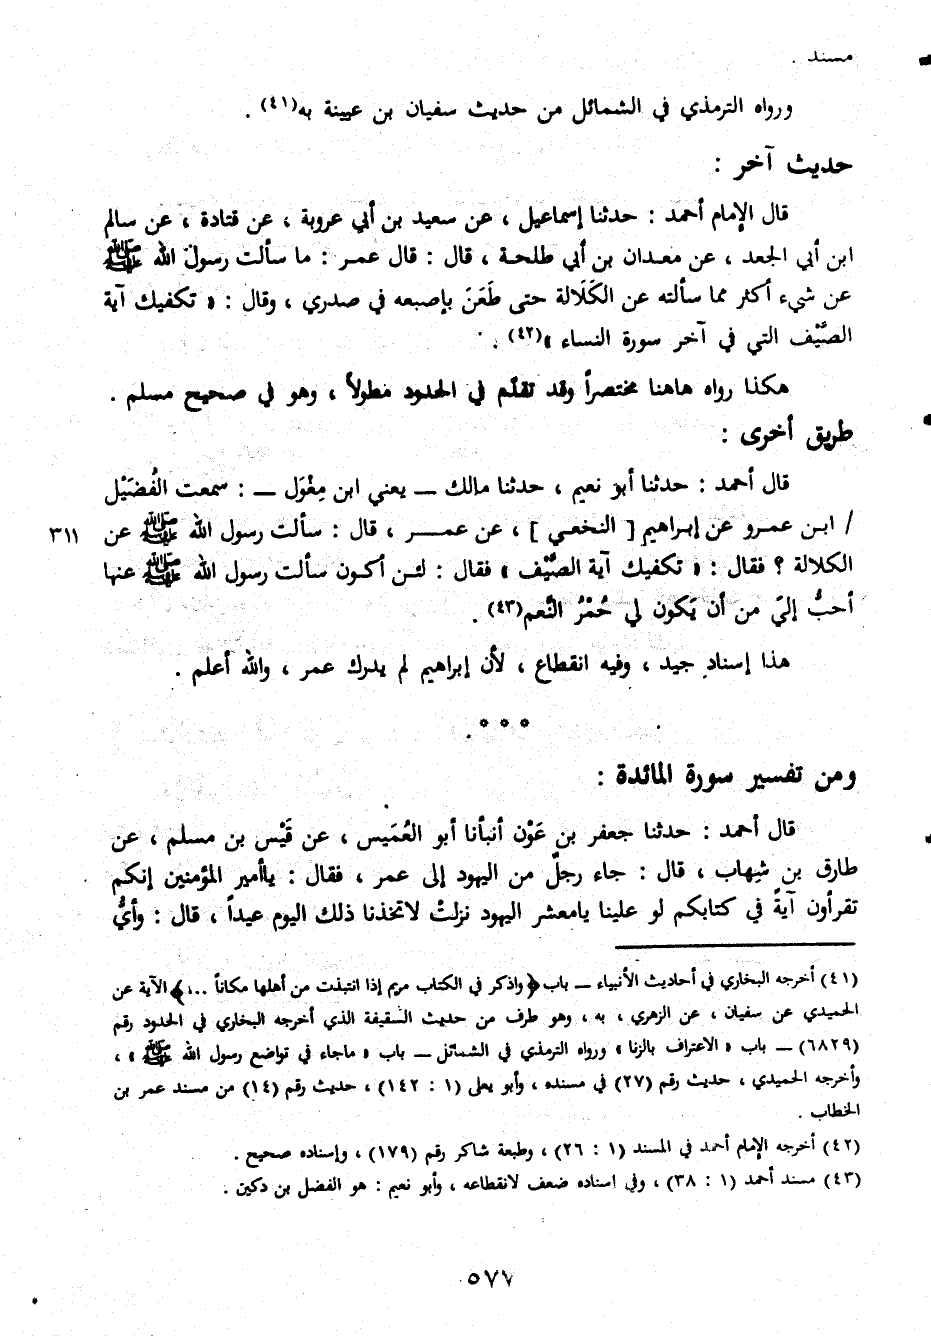 مسند .
ورواه الترمذي في الشمائل من حديث سفيان بن عيينة به(٤١) .
حديث آخر :
قال الإمام أحمد : حدثنا إسماعيل ، عن سعيد بن أبي عروبة ، عن قتادة ، عن سالم
ابن أبي الجعد ، عن معدان بن أبي طلحة ، قال : قال عمر : ما سألت رسول الله ﷺ
عن شيء أكثر مما سألته عن الكَلَالة حتى طَعَنَ بإصبعه في صدري ، وقال : « تكفيك آية
الصَّيْف التي في آخر سورة النساء »(٤٢) .
هكذا رواه هاهنا مختصراً وقد تقدّم في الحدود مطولاً ، وهو في صحيح مسلم .
طريق أخرى :
قال أحمد : حدثنا أبو نعيم ، حدثنا مالك ــ يعني ابن مِغْوَل ــ : سمعت الفُضَيْل
/ ابن عمرو عن إبراهيم [ النخعي ] ، عن عمر ، قال : سألت رسول الله ﷺ عن ٣١١
الكلالة ؟ فقال : « تكفيك آية الصَّيْف » فقال : لئن أكون سألت رسول الله ﷺ عنها
أحبُّ إليّ من أن يَكون لي حُمْرُ النَّعم(٤٣) .
هذا إسناد جيد ، وفيه انقطاع ، لأن إبراهيم لم يدرك عمر ، والله أعلم .
* * *
ومن تفسير سورة المائدة :
قال أحمد : حدثنا جعفر بن عَوْن أنبأنا أبو العُمَيس ، عن قَيْس بن مسلم ، عن
طارق بن شِهاب ، قال : جاء رجلٌ من اليهود إلى عمر ، فقال : ياأمير المؤمنين إنكم
تقرأون آيةً في كتابكم لو علينا يامعشر اليهود نزلتْ لاتخذنا ذلك اليوم عيداً ، قال : وأيُّ
(٤١) أخرجه البخاري في أحاديث الأنبياء ــ باب ﴿واذكر في الكتاب مريم إذا انتبذت من أهلها مكاناً ...﴾ الآية عن
الحميدي عن سفيان ، عن الزهري ، به ، وهو طرف من حديث السقيفة الذي أخرجه البخاري في الحدود رقم
(٦٨٢٩) ــ باب « الاعتراف بالزنا » ورواه الترمذي في الشمائل ــ باب « ماجاء في تواضع رسول الله ﷺ » ،
وأخرجه الحميدي ، حديث رقم (٢٧) في مسنده ، وأبو يعلى (١ : ١٤٢) ، حديث رقم (١٤) من مسند عمر بن
الخطاب .
(٤٢) أخرجه الإمام أحمد في المسند (١ : ٢٦) ، وطبعة شاكر رقم (١٧٩) ، وإسناده صحيح .
(٤٣) مسند أحمد (١ : ٣٨) ، وفي اسناده ضعف لانقطاعه ، وأبو نعيم : هو الفضل بن دكين .
٥٧٧